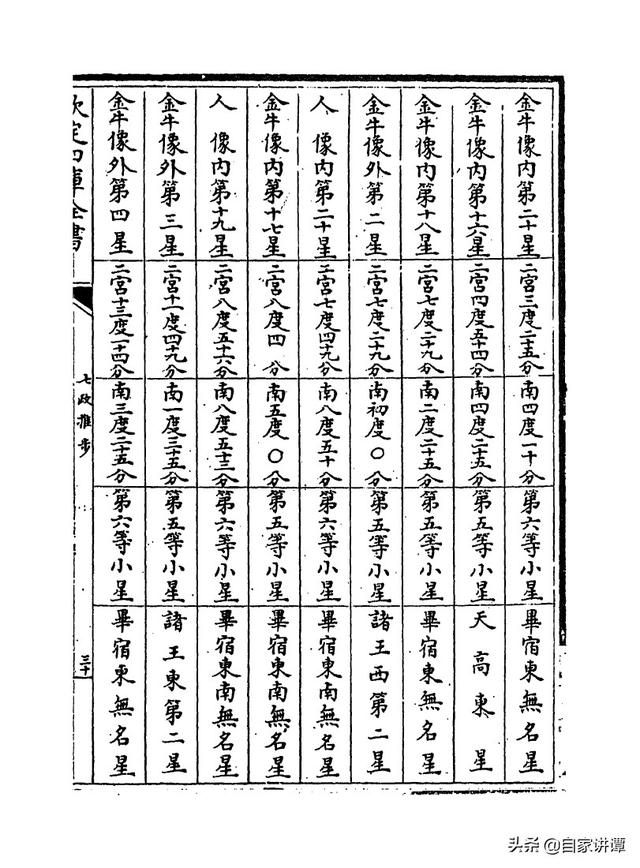 金牛像内第二十星 二宮三度二十五分 南四度一十分 第六等小星 畢宿東無名星
金牛像内第十六星 二宮四度五十四分 南四度二十五分 第五等小星 天高東星
金牛像内第十八星 二宮七度二十九分 南二度二十五分 第五等小星 畢宿東無名星
金牛像外第二星 二宮七度二十九分 南初度〇分 第五等小星 諸王西第二星
人像内第二十星 二宮七度四十九分 南八度五十分 第六等小星 畢宿東南無名星
金牛像内第十七星 二宮八度四分 南五度〇分 第五等小星 畢宿東南無名星
人像内第十九星 二宮八度五十六分 南八度五十三分 第六等小星 畢宿東南無名星
金牛像外第三星 二宮十一度四十九分 南一度三十五分 第五等小星 諸王東第二星
金牛像外第四星 二宮十三度一十四分 南三度二十五分 第六等小星 畢宿東無名星
欽定四庫全書
七政推步
三十
头条 @自家讲谭